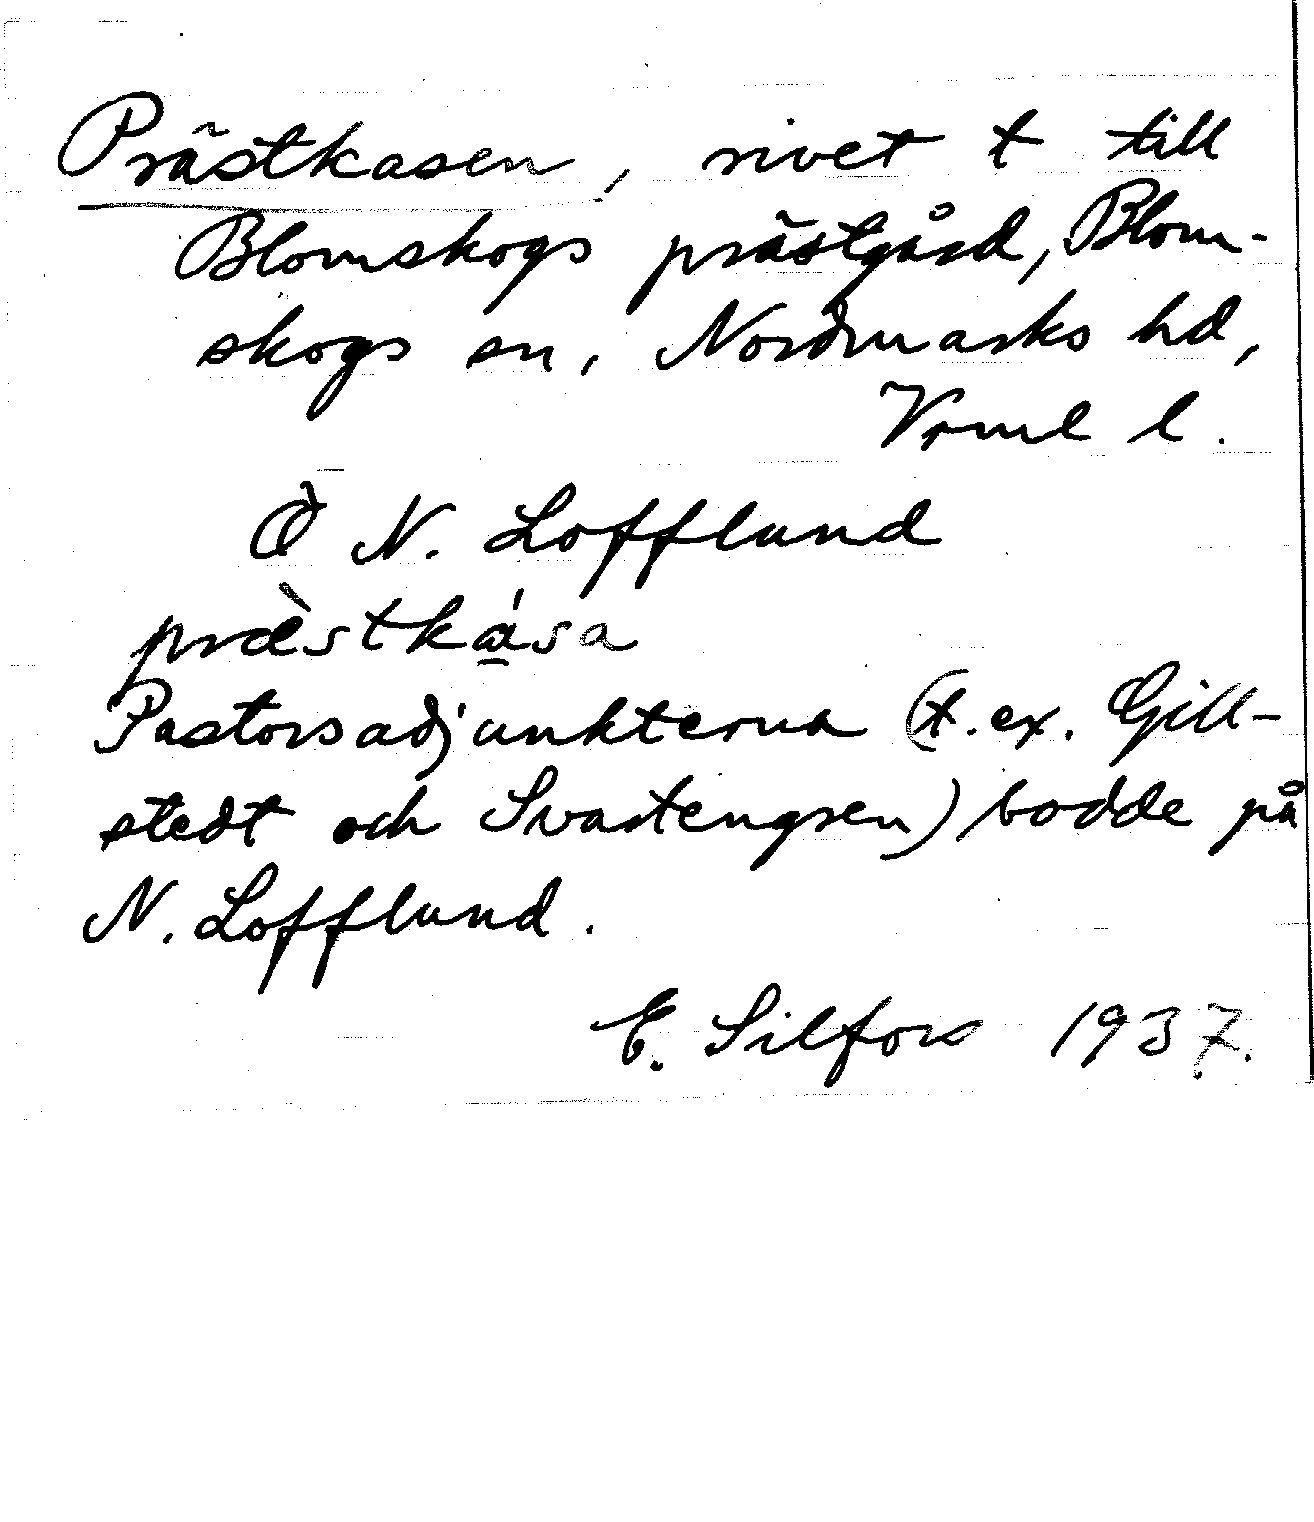 Prästkasen, rivet t till
Blomskogs prästgård, Blom-
skogs sn, Nordmarks hd,
Vrml l.
Ö N. Lofflund
præ̀stká̱sa
Pastorsadjunkterna (t.ex. Gill-
stedt och Svartengren) bodde på
N. Lofflund.
E. Silfors 1937.